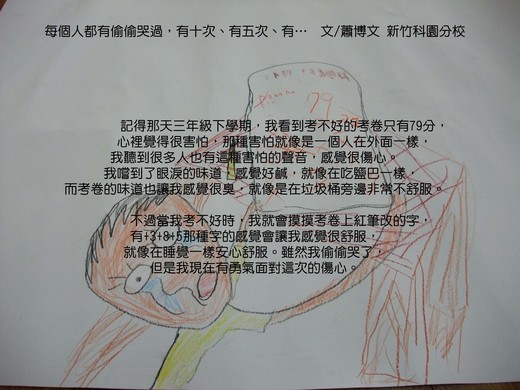 每個人都有偷偷哭過，有十次、有五次、有… 文/蕭博文 新竹科園分校
79
記得那天三年級下學期，我看到考不好的考卷只有79分，
心裡覺得很害怕，那種害怕就像是一個人在外面一樣，
我聽到很多人也有這種害怕的聲音，感覺很傷心。
我嚐到了眼淚的味道，感覺好鹹，就像在吃鹽巴一樣，
而考卷的味道也讓我感覺很臭，就像是在垃圾桶旁邊非常不舒服。
不過當我考不好時，我就會摸摸考卷上紅筆改的字，
有+3+8+5那種字的感覺會讓我感覺很舒服，
就像在睡覺一樣安心舒服。雖然我偷偷哭了，
但是我現在有勇氣面對這次的傷心。